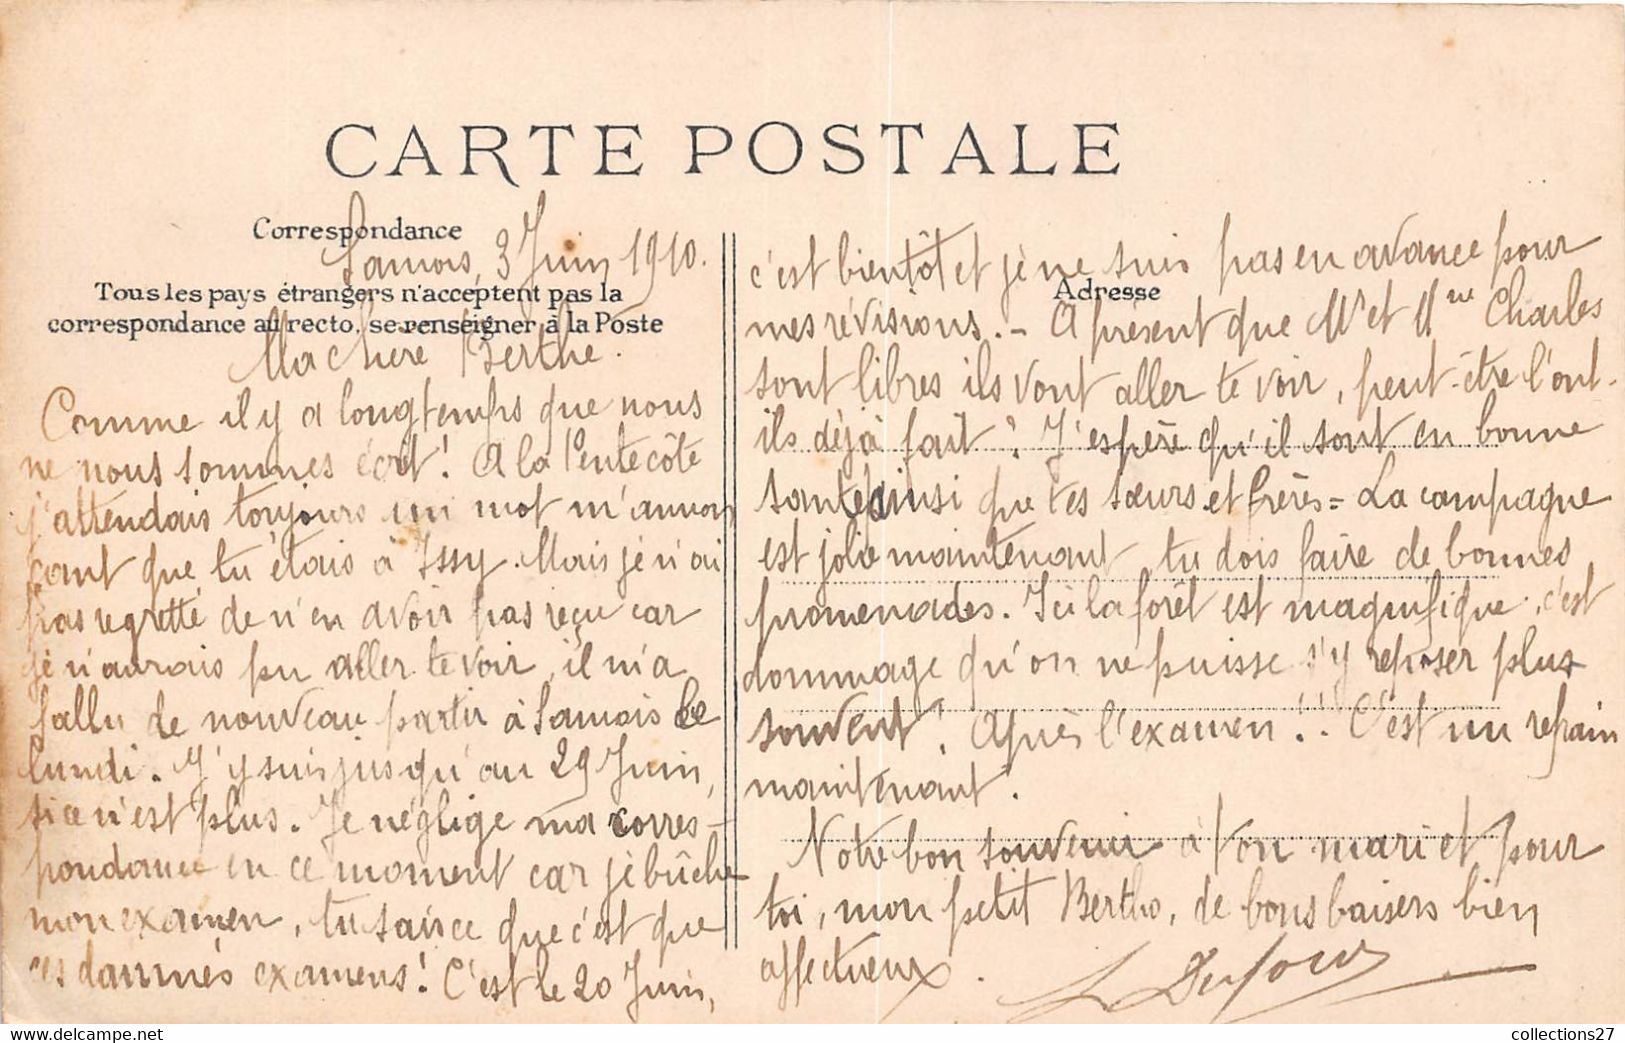 CARTE POSTALE
Correspondance
Samois, 3 Juin 1910.
Tous les pays étrangers n'acceptent pas la
correspondance au recto, se renseigner à la Poste
Ma chère Berthe.
Comme il y a longtemps que nous
ne nous sommes écrit! A la Pentecôte
j'attendais toujours un mot m'annon
çant que tu étais à Issy. Mais je n'ai
pas regretté de n'en avoir pas reçu car
je n'aurais pu aller te voir, il m'a
fallu de nouveau partir à Samois le
lundi. J'y suis jusqu'au 29 Juin,
si ce n'est plus. Je néglige ma corres-
pondance en ce moment car je bûche
mon examen, tu sais ce que c'est que
ces damnés examens! C'est le 20 Juin,
Adresse
c'est bientôt et je ne suis pas en avance pour
mes révisions. - A présent que Mr et Mme Charles
sont libres ils vont aller te voir, peut-être l'ont-
ils déjà fait? J'espère qu'il sont en bonne
santé ainsi que tes sœurs et frères = La campagne
est jolie maintenant tu dois faire de bonnes
promenades. Ici la forêt est magnifique, c'est
dommage qu'on ne puisse s'y reposer plus
souvent! Après l'examen!! C'est un refrain
maintenant.
Notre bon souvenir à ton mari et pour
toi, mon petit Bertho, de bons baisers bien
affectueux.
L Dufour
collections27